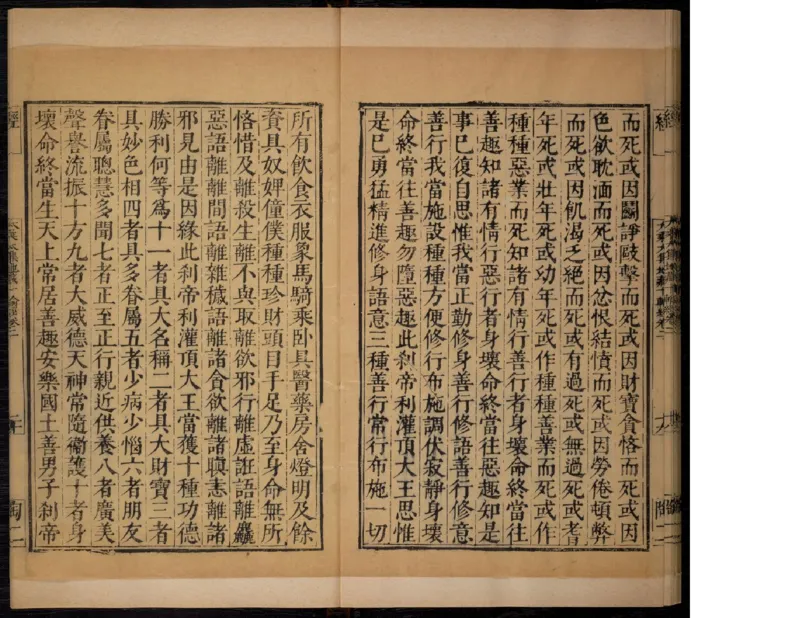 而死或因鬬諍敺擊而死或因財寶貪悋而死或因
色欲耽湎而死或因忿恨結憤而死或因勞倦頓弊
而死或因飢渴乏絕而死或有過死或無過死或耆
年死或壯年死或幼年死或作種種善業而死或作
種種惡業而死知諸有情行善行者身壞命終當往
善趣知諸有情行惡行者身壞命終當往惡趣知是
事已復自思惟我當正勤修身善行修語善行修意
善行我當施設種種方便修行布施調伏寂靜身壞
命終當往善趣勿墮惡趣此刹帝利灌頂大王思惟
是已勇猛精進修身語意三種善行常行布施一切
所有飲食衣服象馬騎乘卧具醫藥房舍燈明及餘
資具奴婢僮僕種種珍財頭目手足乃至身命無所
悋惜及離殺生離不與取離欲邪行離虛誑語離麤
惡語離離間語離雜穢語離諸貪欲離諸瞋恚離諸
邪見由是因緣此刹帝利灌頂大王當獲十種功德
勝利何等爲十一者具大名稱二者具大財寶三者
具妙色相四者具多眷屬五者少病少惱六者朋友
眷屬聰慧多聞七者正至正行親近供養八者廣美
聲譽流振十方九者大威德天神常隨衞護十者身
壞命終當生天上常居善趣安樂國土善男子刹帝
經
陶二